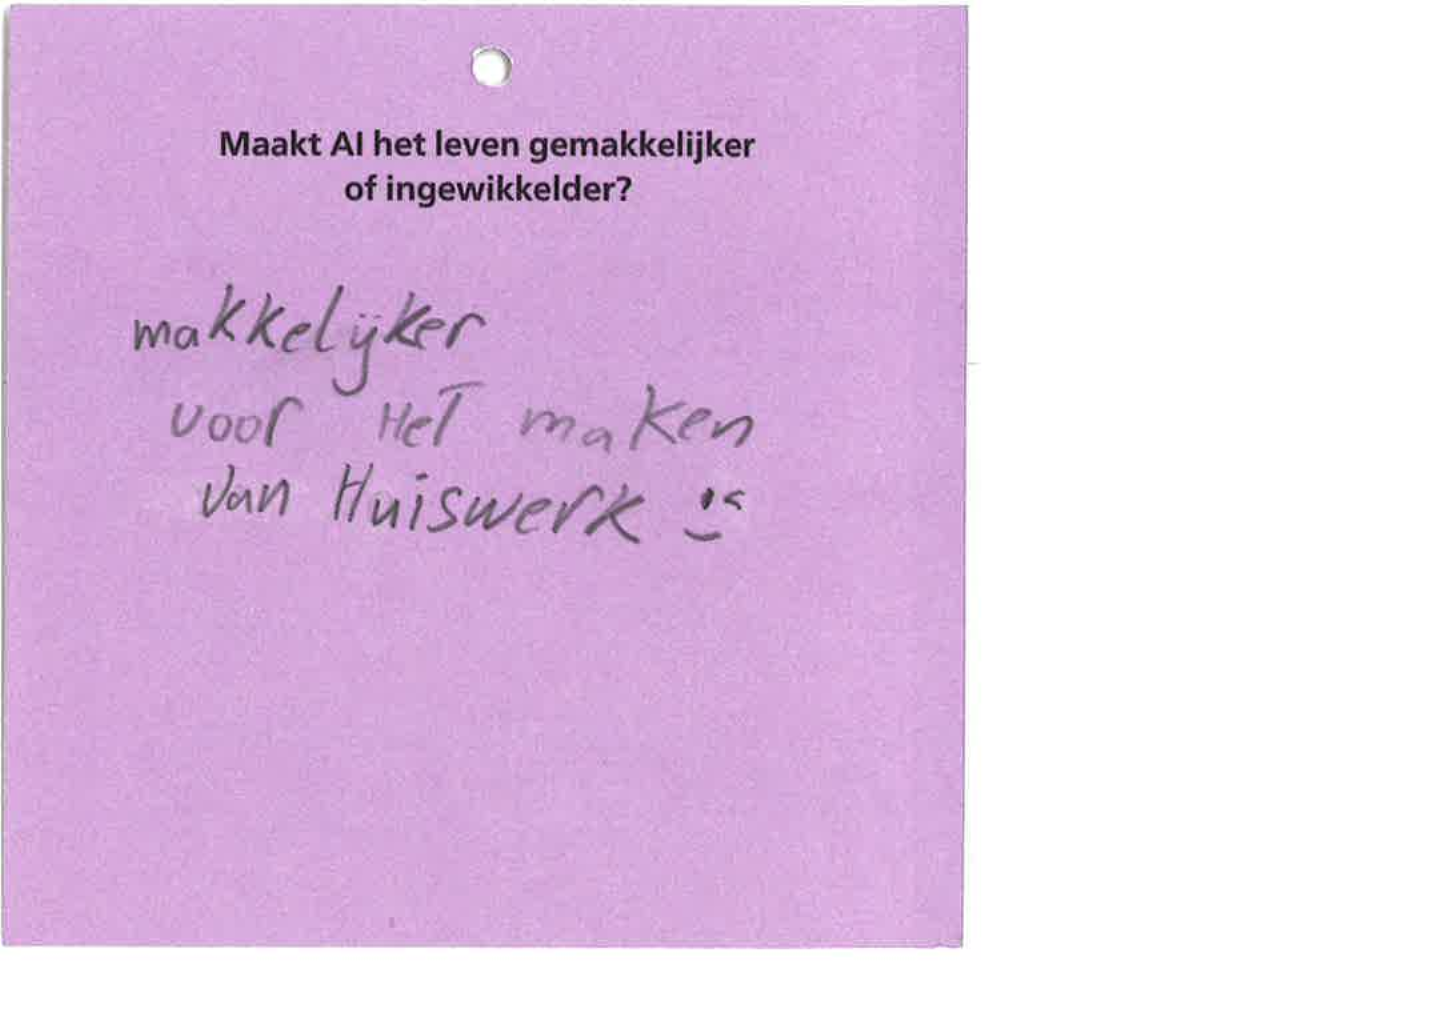 Maakt AI het leven gemakkelijker
of ingewikkelder?
makkelijker
voor Het maken
van Huiswerk